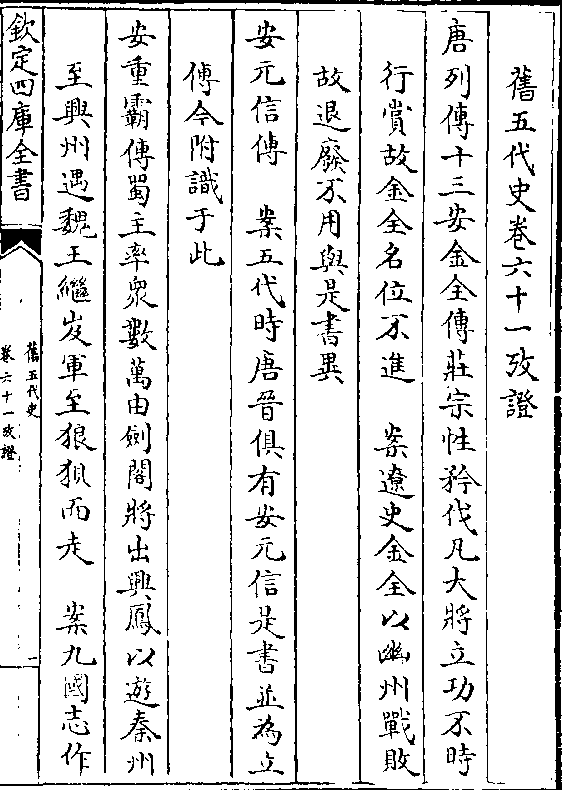 舊五代史卷六十一攷證
唐列傳十三安金全傳莊宗性矜伐凡大將立功不時
行賞故金全名位不進　案遼史金全以幽州戰敗
故退廢不用與是書異
安元信傳　案五代時唐晉俱有安元信是書並為立
傳今附識于此
安重霸傳蜀主率衆數萬由劍閣將出興鳳以遊秦州
至興州遇魏王繼岌軍至狼狽而走　案九國志作
欽定四庫全書
舊五代史
卷六十一攷證
一